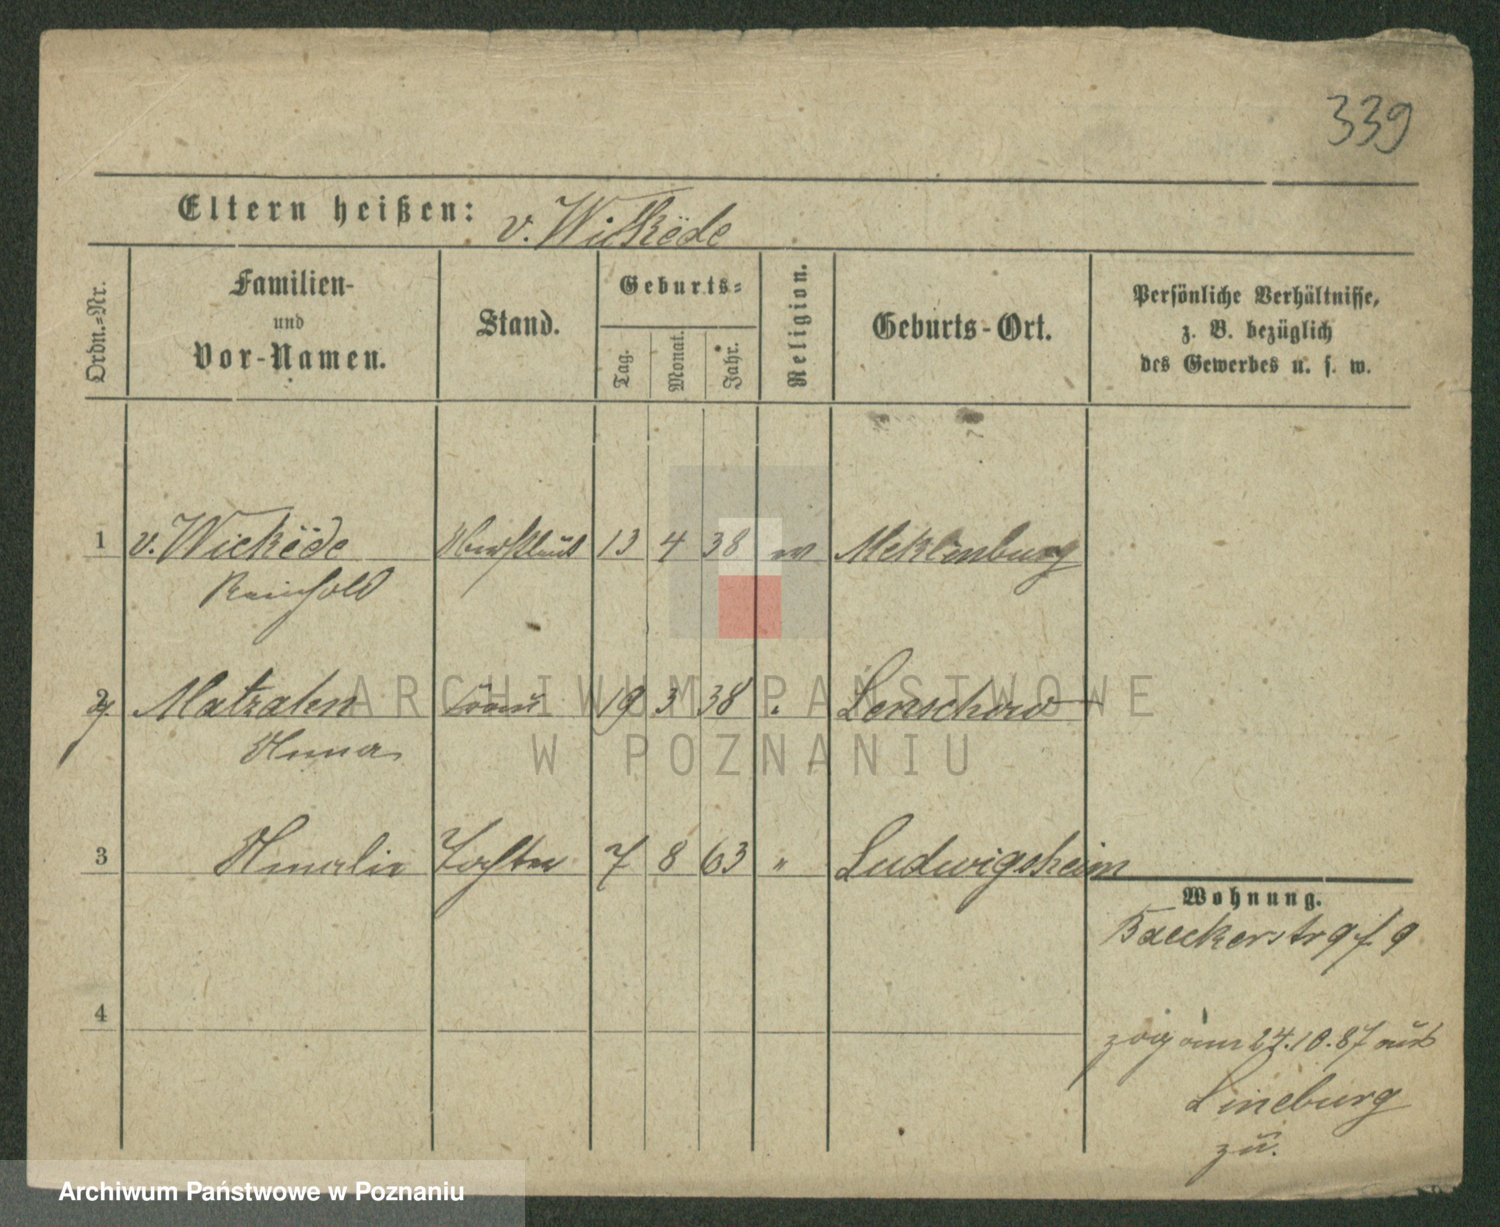 339
Eltern heißen: v. Wickëde
Ordn.-Nr.
Familien-
und
Vor-Namen.
Stand.
Geburts-
Tag.
Monat.
Jahr.
Religion.
Geburts-Ort.
Persönliche Verhältnisse,
z. B. bezüglich
des Gewerbes u. s. w.
1 v. Wickëde 13 4 38 Meklenburg
Reinhold
2 Frau 19 3 38 " Lenschow
Anna
ARCHIWUM PAŃSTWOWE
W POZNANIU
3 Amalie Tochter 7 8 63 " Ludwigsheim
Wohnung.
Baeckerstr 9 f. 9
4
zog am 24.10.87 aus
Lineburg
zu.
Archiwum Państwowe w Poznaniu